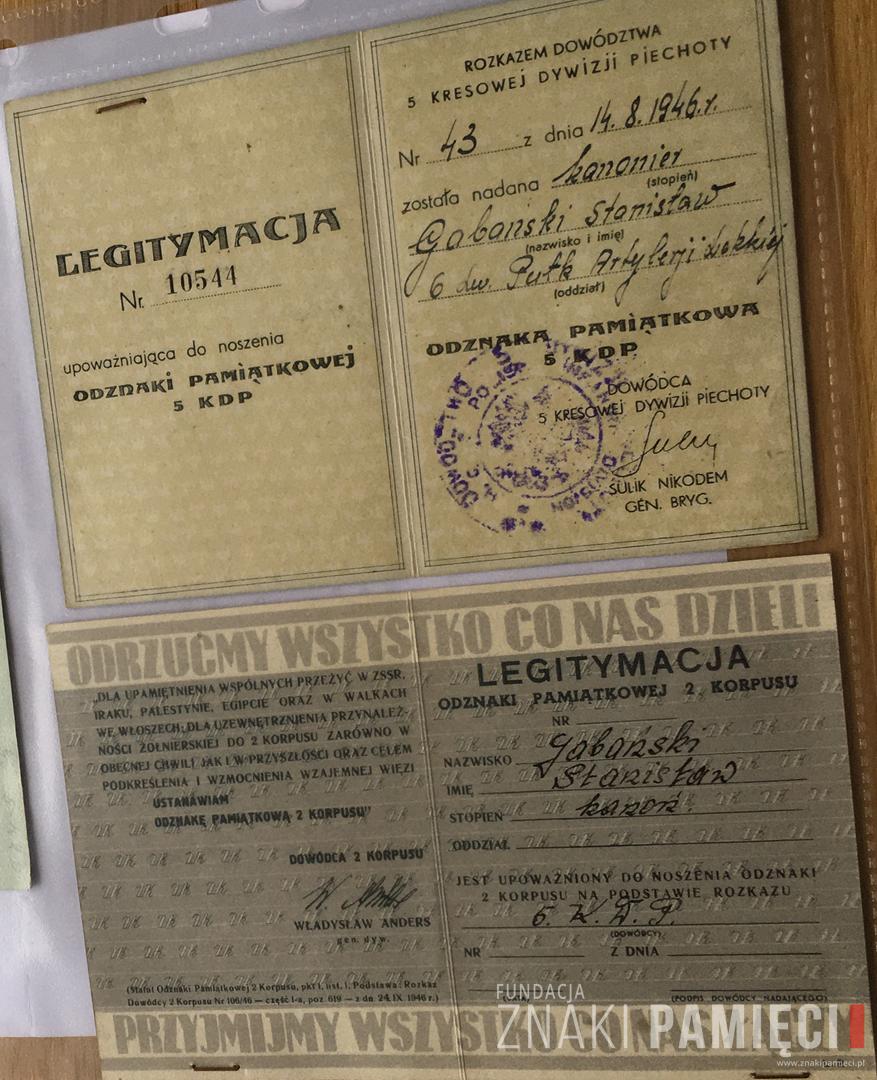 LEGITYMACJA
Nr. 10544
upoważniająca do noszenia
ODZNAKI PAMIĄTKOWEJ
5 KDP
ROZKAZEM DOWÓDZTWA
5 KRESOWEJ DYWIZJI PIECHOTY
Nr 43 z dnia 14.8.1946.r.
została nadana kanonier
(stopień)
Gabański Stanisław
(nazwisko i imię)
6 lw. Pułk Artylerji Lekkiej
(oddział)
ODZNAKA PAMIĄTKOWA
5 KDP
DOWÓDCA
5 KRESOWEJ DYWIZJI PIECHOTY
SULIK NIKODEM
GEN. BRYG.
ODRZUĆMY WSZYSTKO CO NAS DZIELI
„DLA UPAMIĘTNIENIA WSPÓLNYCH PRZEŻYĆ W ZSSR,
IRAKU, PALESTYNIE, EGIPCIE ORAZ W WALKACH
WE WŁOSZECH, DLA UZEWNĘTRZNIENIA PRZYNALEŻ-
NOŚCI ŻOŁNIERSKIEJ DO 2 KORPUSU ZARÓWNO W
OBECNEJ CHWILI JAK I W PRZYSZŁOŚCI ORAZ CELEM
PODKREŚLENIA I WZMOCNIENIA WZAJEMNEJ WIĘZI
USTANAWIAM
ODZNAKĘ PAMIĄTKOWĄ 2 KORPUSU"
DOWÓDCA 2 KORPUSU
WŁADYSŁAW ANDERS
gen. dyw.
(Statut Odznaki Pamiątkowej 2 Korpusu, pkt 1, list. l. Podstawa: Rozkaz
Dowódcy 2 Korpusu Nr 106/46 — część I-a, poz. 619 — z dn. 24.IX 1946 r.)
LEGITYMACJA
ODZNAKI PAMIĄTKOWEJ 2 KORPUSU
NR
NAZWISKO Gabański
IMIĘ Stanisław
STOPIEŃ kanon.
ODDZIAŁ
JEST UPOWAŻNIONY DO NOSZENIA ODZNAKI
2 KORPUSU NA PODSTAWIE ROZKAZU
5. K. D. P.
(DOWÓDCY)
NR Z DNIA
(PODPIS DOWÓDCY NADAJĄCEGO)
PRZYJMIJMY WSZYSTKO CO NAS
FUNDACJA
ZNAKI PAMIĘCI
www.znakipamieci.pl